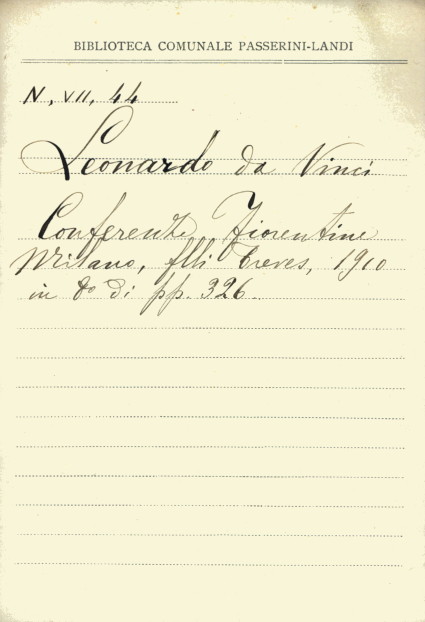 BIBLIOTECA COMUNALE PASSERINI-LANDI
N, VII, 44
Leonardo da Vinci
Conferenze Fiorentine
Milano, flli Treves, 1910
in 8º di pp. 326